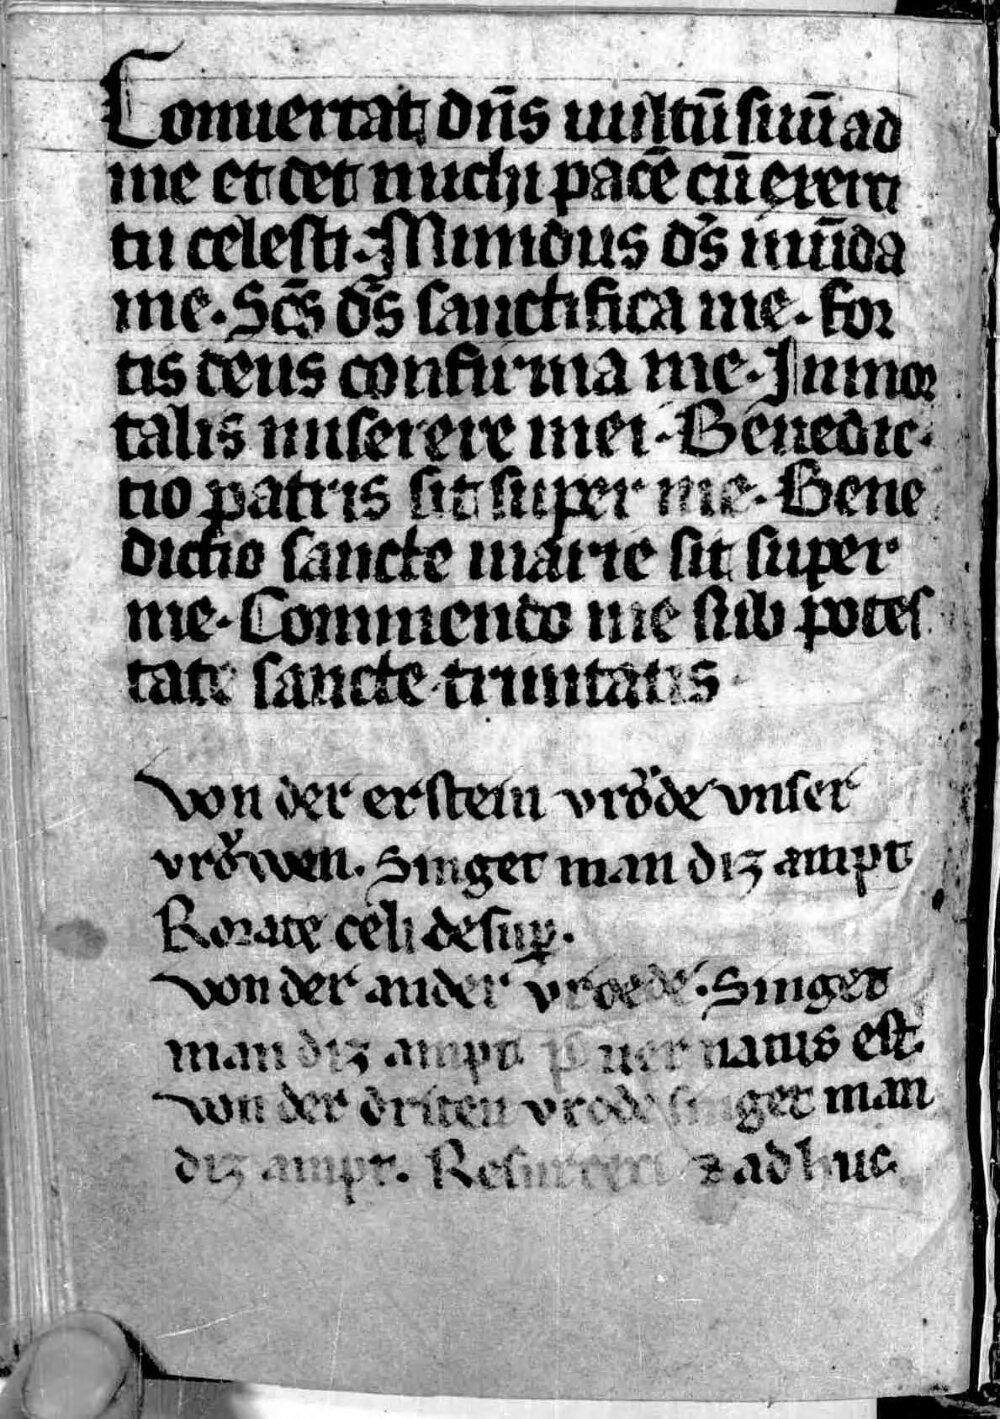 Conuertat dn̄s uultū suū ad
me et det michi pacē cū exerci
tu celesti. Mundus ds̄ mūda
me. Scs̄ ds̄ sanctifica me. for
tis deus confirma me. Inmor
talis miserere mei. Benedic
tio patris sit super me. Bene
dictio sancte marie sit super
me. Commendo me sub potes
tate sancte trinitatis
von der erstein vroͮde vnser
vroͮwen. Singet man diz ampt
Rorate celi desup̱.
von der ander vroede. Singet
man diz ampt puer natus est.
von der driten vrode singet man
diz ampt. Resurrexi ⁊ adhuc.